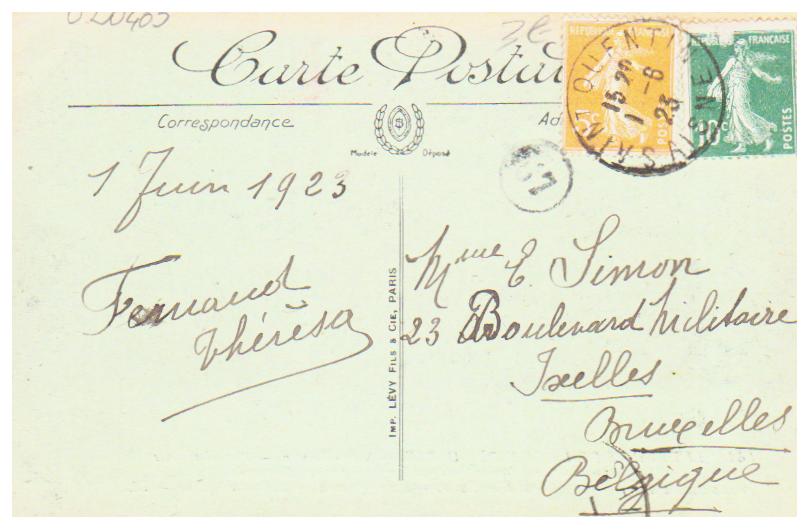 Carte Postale
Correspondance
Modèle Déposé
RÉPUBLIQUE FRANÇAISE
POSTES
10c
SAINT QUENTIN
AISNE
15 20
1 -6
23
1 Juin 1923
Fernand
Thérèsa
IMP. LÉVY FILS & CIE, PARIS
Mme E. Simon
23 Boulevard Militaire
Ixelles
Bruxelles
Belgique